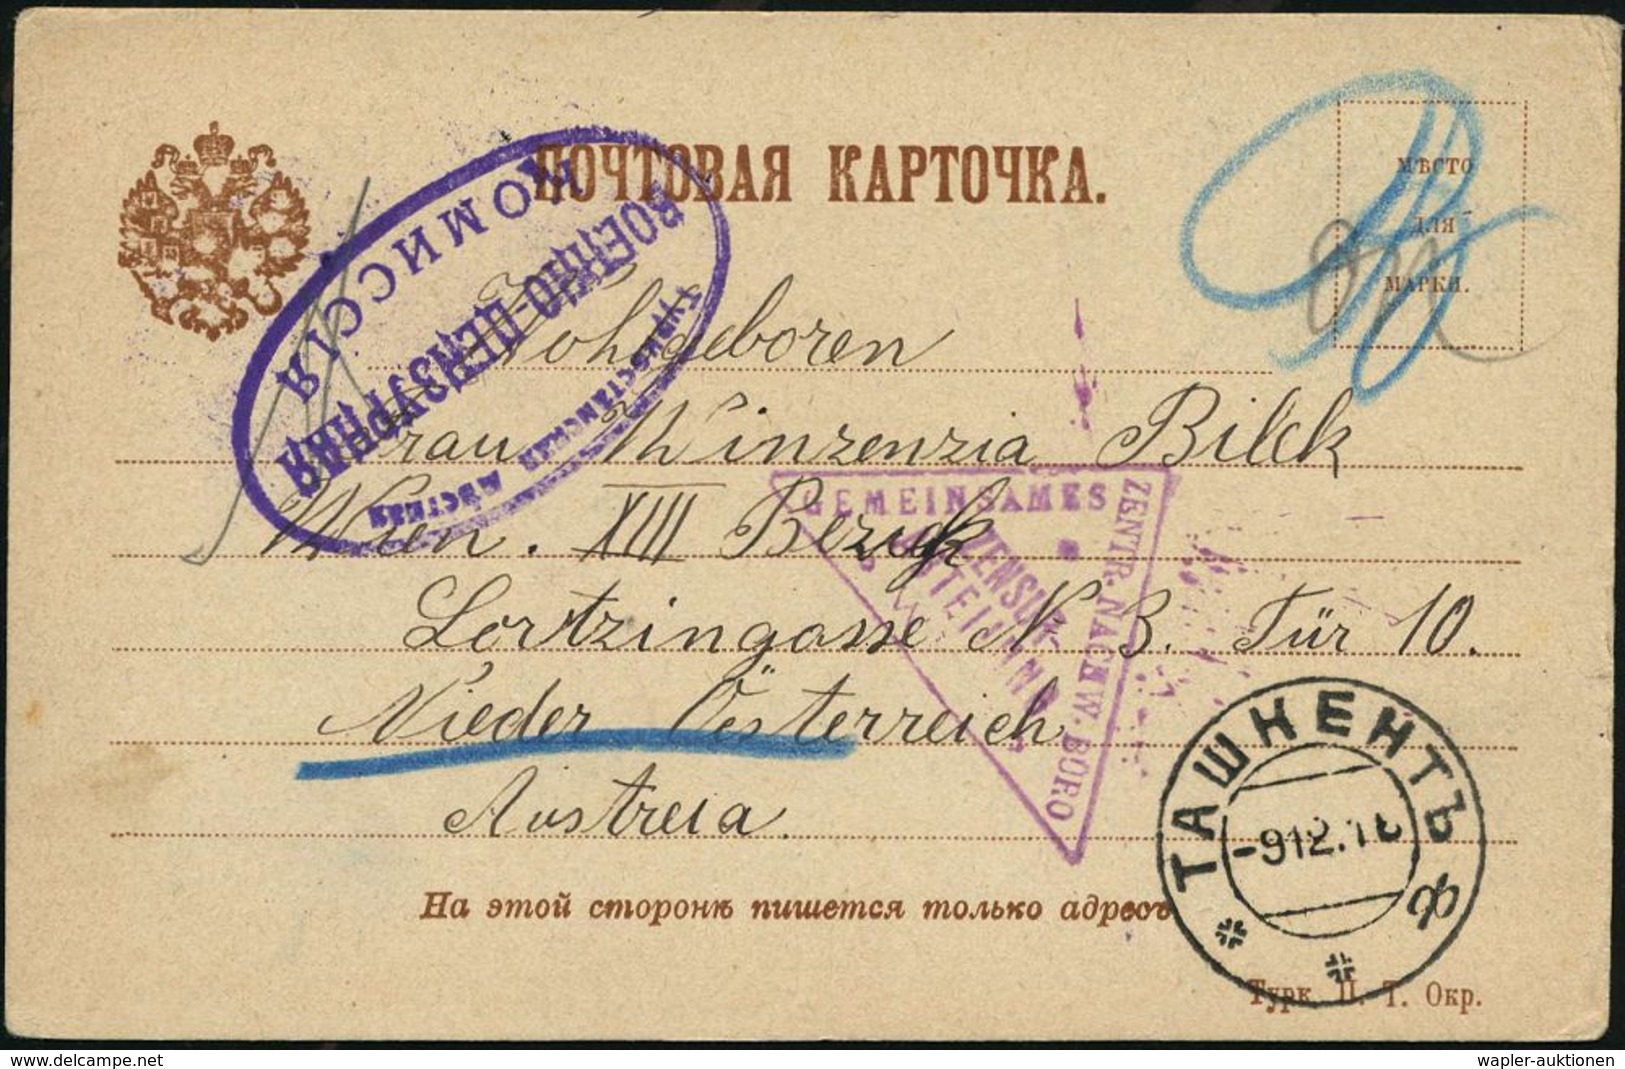 ПОЧТОВАЯ КАРТОЧКА.
МѢСТО
ДЛЯ
МАРКИ.
Туркестанская Мѣстная
ВОЕННО-ЦЕНЗУРНАЯ
КОМИССІЯ
Wohlgeboren
Frau Winzenzia Bilek
Wien. XIII Bezirk
Lortzingasse N 3. Tür 10.
Nieder Österreich
Austreia.
GEMEINSAMES
ZENTR. NACHW. BURO
ZENSUR-
ABTEILUNG
ТАШКЕНТЪ
-912.16
Ф
На этой сторонѣ пишется только адресъ
Турк. П. Т. Окр.
delcampe.net
wapler-auktionen